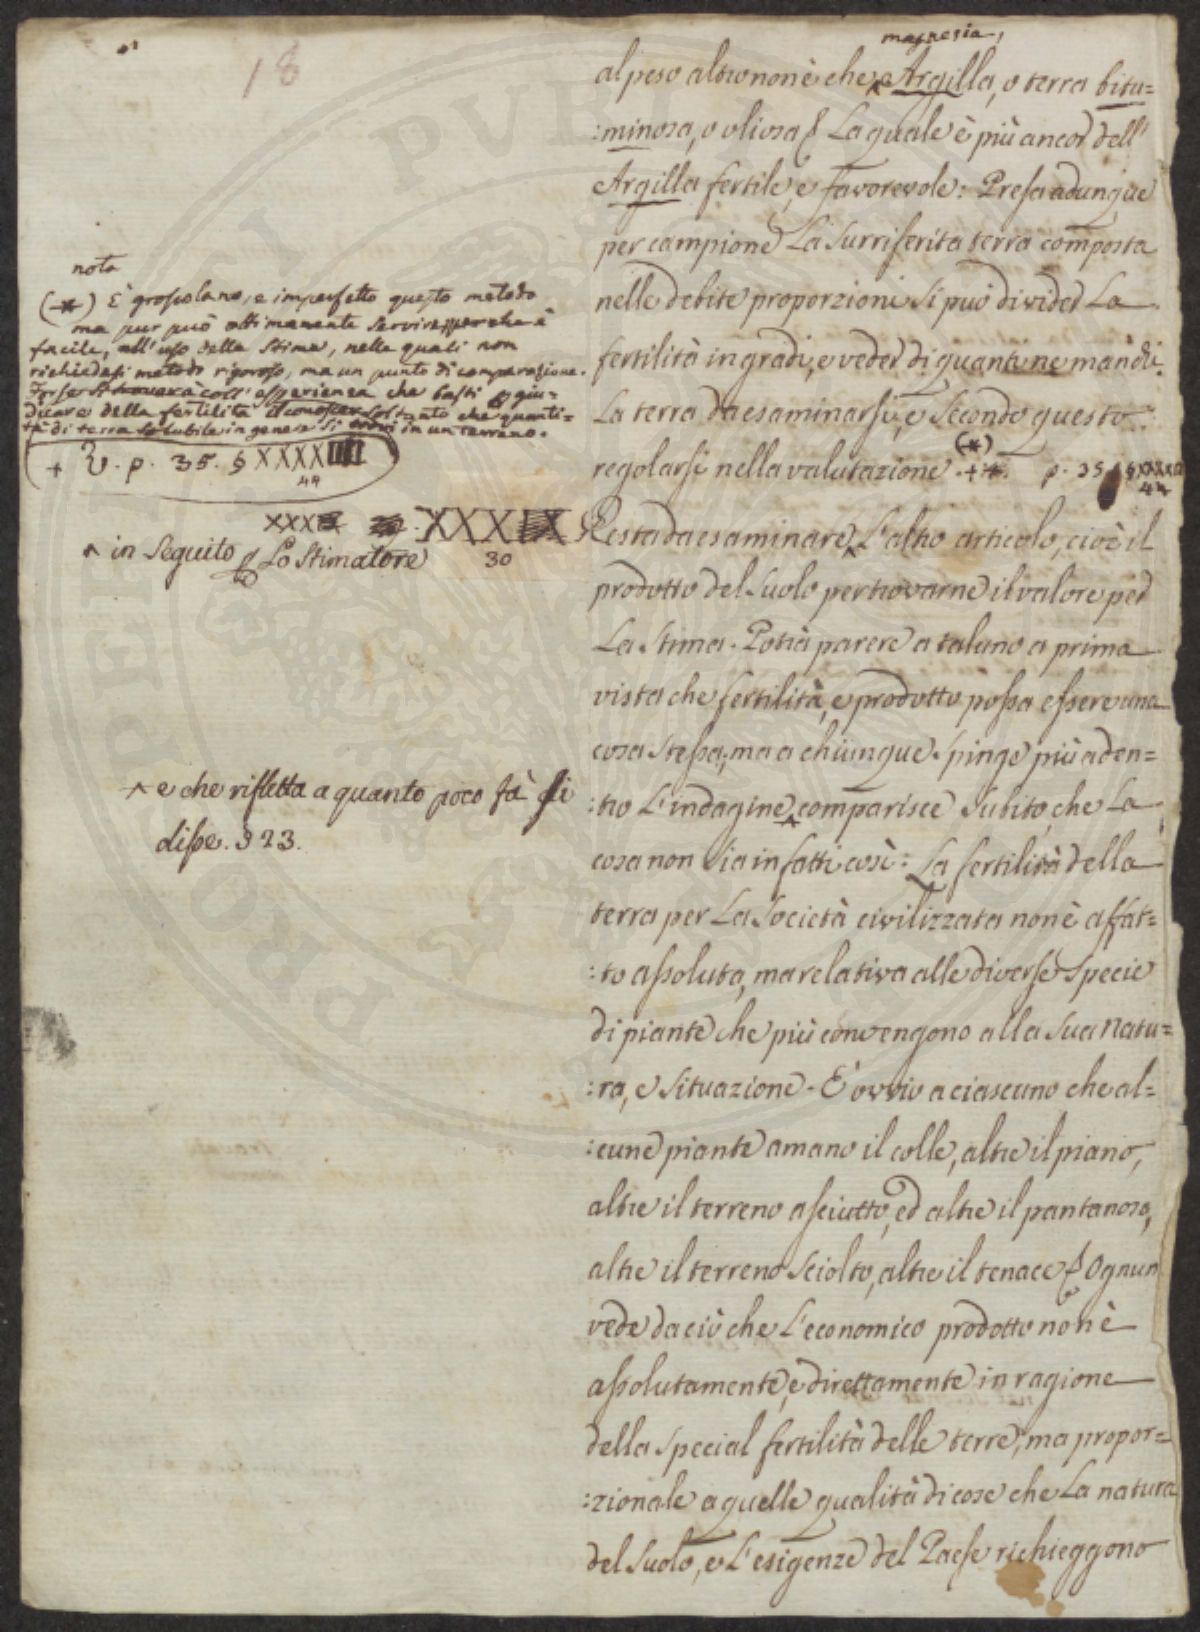 18
magnesia,
al peso altro non è che Argilla, o terra bitu=
:minosa, o oliosa & La quale è più ancor dell'
Argilla fertile, e favorevole: Presa adunque
per campione La surriferita terra composta
nelle debite proporzioni si può divider La
fertilità in gradi, e veder di quanti ne manchi
La terra da esaminarsi, e secondo questo
regolarsi nella valutazione. (*) p. 35. §
44
nota
(*) È grossolano, e imperfetto questo metodo
ma pur può ottimamente servire perchè è
facile, all'uso della stima, nelle quali non
richiedesi metodo rigoroso, ma un punto di comparazione.
Forse si troverà coll'esperienza che basti giu=
dicare della fertilità soltanto che quanti=
tà di terra solubile in genere si trovi in un terreno.
+ V. p. 35. § XXXX
44
XXX XXXIX
30
^ in seguito Lo Stimatore
Resta da esaminare L'altro articolo, cioè il
prodotto del suolo per trovarne il valore per
La stima. Potrà parere a taluno a prima
vista che fertilità, e prodotto possa essere una
cosa stessa; ma a chiunque spinge più aden=
:tro L'indagine comparisce subito, che La
^ e che rifletta a quanto poco fà si
disse. § 23.
cosa non sia infatti così: La fertilità della
terra per La Società civilizzata non è affat=
:to assoluta, ma relativa alle diverse specie
di piante che più convengono alla sua natu=
:ra, e situazione. È ovvio a ciascuno che al=
:cune piante amano il colle, altre il piano,
altre il terreno asciutto, ed altre il pantanoso,
altre il terreno sciolto, altre il tenace & Ognun
vede da ciò che L'economico prodotto non è
assolutamente, e direttamente in ragione
della special fertilità delle terre, ma propor=
:zionale a quelle qualità di cose che La natura
del suolo, e L'esigenze del Paese richieggono